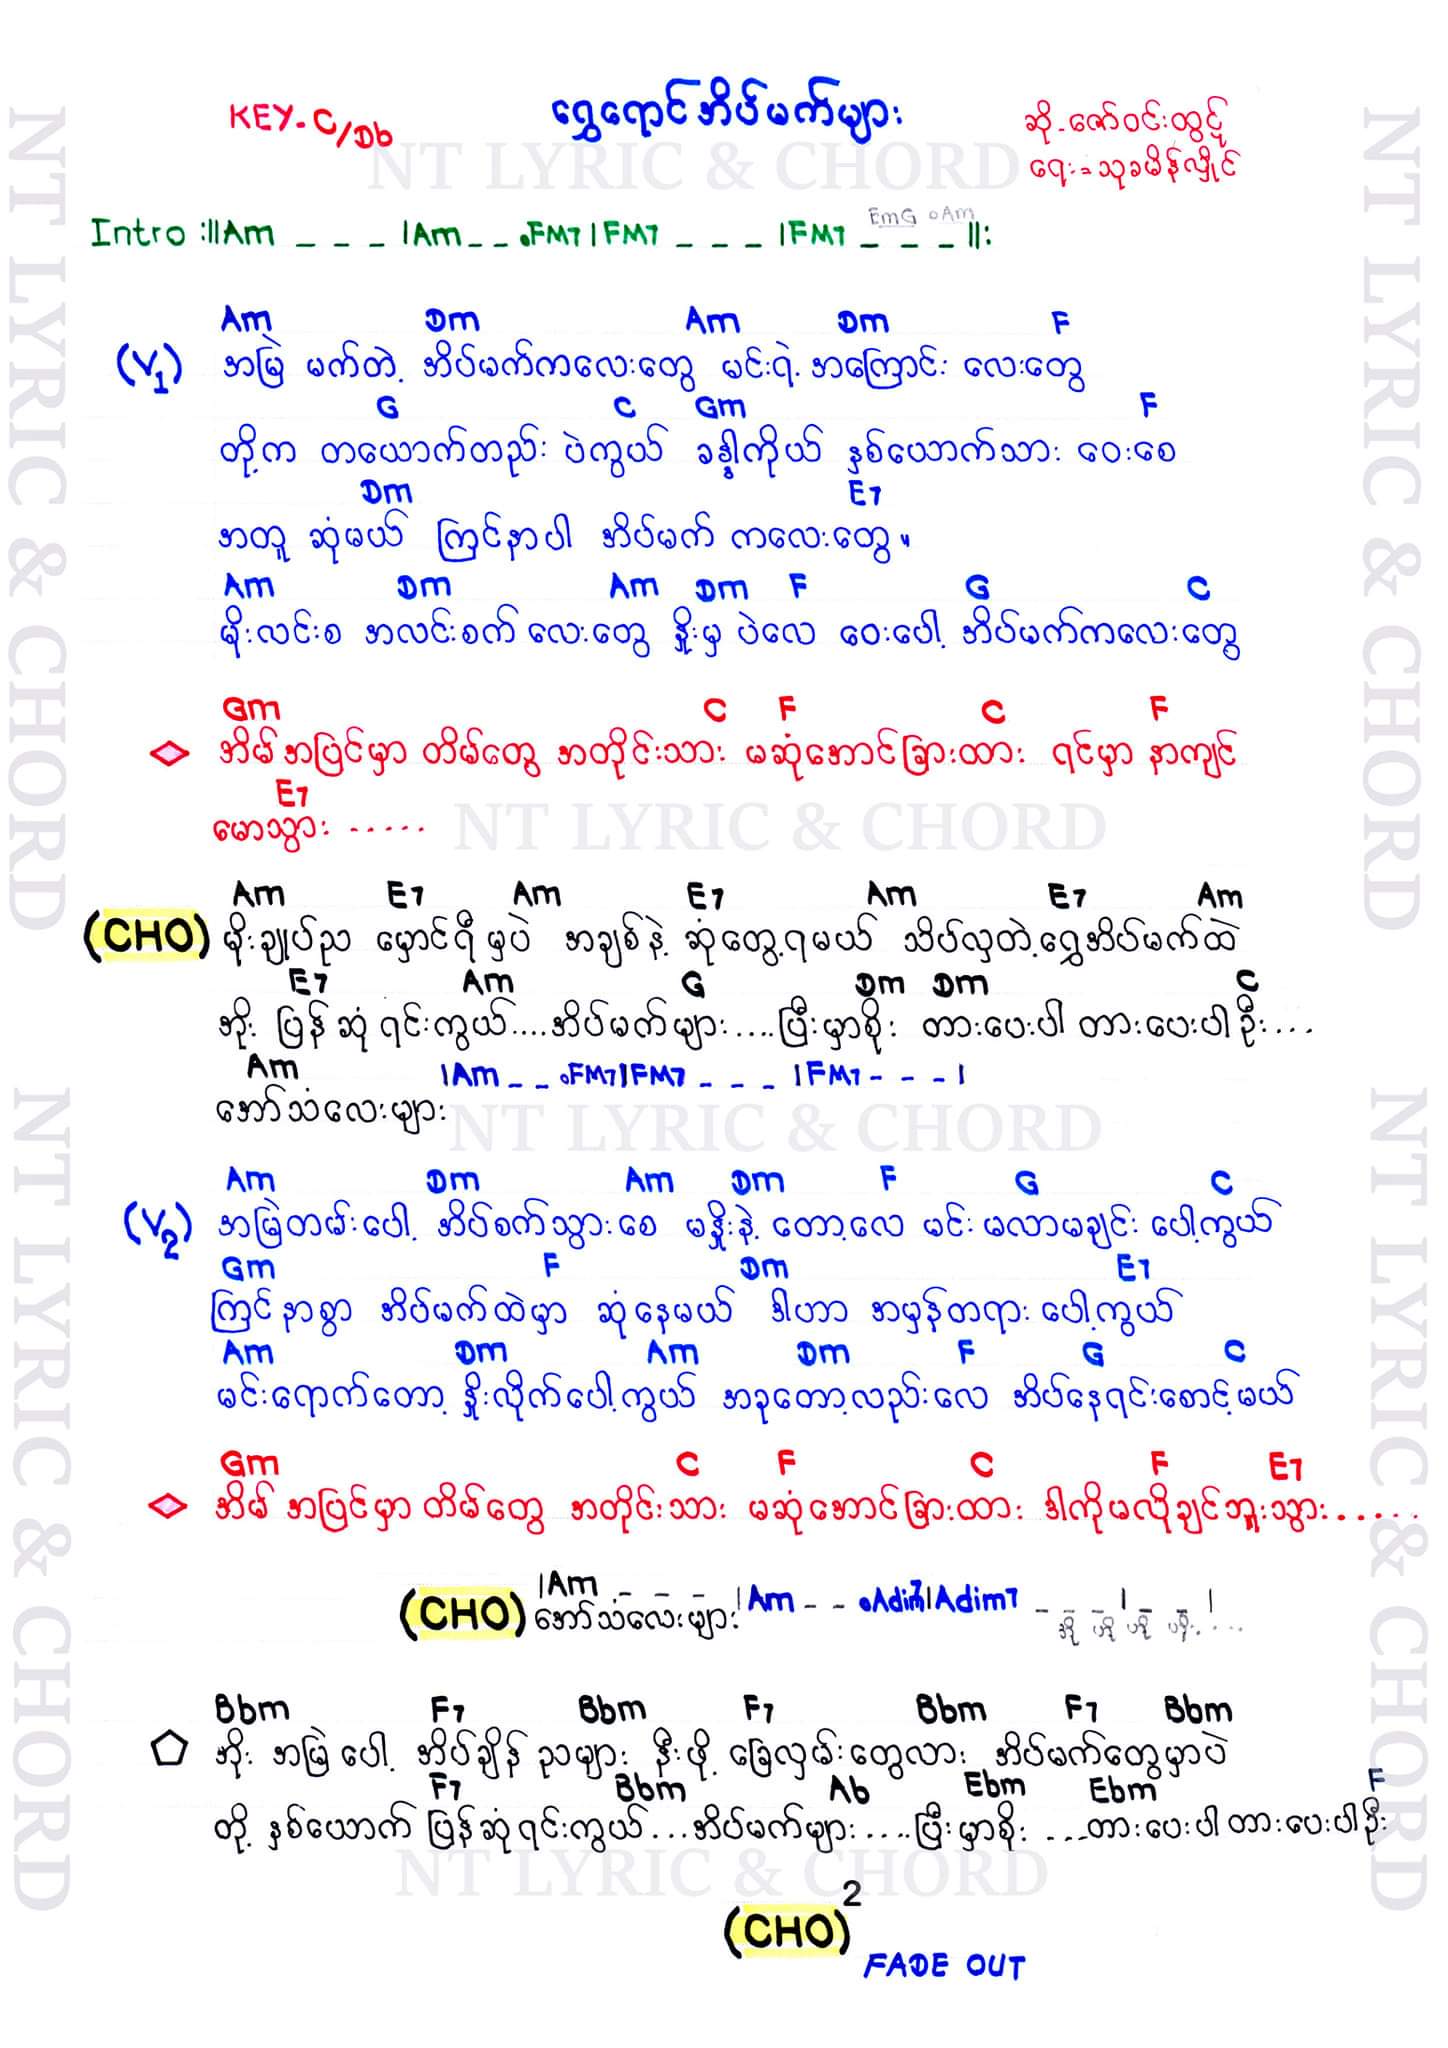 KEY-C/Db
ရွှေရောင်အိပ်မက်များ
ဆို-ဇော်ဝင်းထွဋ်
ရေး=သုခမိန်လှိုင်
NT LYRIC & CHORD
Intro :||Am _ _ _ |Am _ _ .FM7 |FM7 _ _ _ |FM7 _ _ _ ||:
EmG .Am
Am Dm Am Dm F
(V1) အမြဲ မက်တဲ့ အိပ်မက်ကလေးတွေ မင်းရဲ့ အကြောင်း လေးတွေ
G C Gm F
တို့က တယောက်တည်း ပဲကွယ် ခန္ဓါကိုယ် နှစ်ယောက်သား ဝေးစေ
Dm E7
အတူ ဆုံမယ် ကြင်နာပါ အိပ်မက် ကလေးတွေ။
Am Dm Am Dm F G C
မိုးလင်းစ အလင်းစက် လေးတွေ နှိုးမှ ပဲလေ ဝေးပေါ့ အိပ်မက်ကလေးတွေ
Gm C F C F
အိမ်အပြင်မှာ တိမ်တွေ အတိုင်းသား မဆုံအောင်ခြားထား ရင်မှာ နာကျင်
E7
မောသွား .....
NT LYRIC & CHORD
Am E7 Am E7 Am E7 Am
(CHO) မိုးချုပ်ည မှောင်ရီမှပဲ အချစ်နဲ့ ဆုံတွေ့ရမယ် သိပ်လှတဲ့ရွှေအိပ်မက်ထဲ
E7 Am G Dm Dm C
အိုး ပြန်ဆုံရင်းကွယ်....အိပ်မက်များ....ပြီးမှာစိုး တားပေးပါ တားပေးပါဦး....
Am |Am _ _ .FM7|FM7 _ _ _ |FM7 - - - |
အော်သံလေးများ
NT LYRIC & CHORD
Am Dm Am Dm F G C
(V2) အမြဲတမ်းပေါ့ အိပ်စက်သွားစေ မနှိုးနဲ့ တော့လေ မင်း မလာမချင်း ပေါ့ကွယ်
Gm F Dm E7
ကြင်နာစွာ အိပ်မက်ထဲမှာ ဆုံနေမယ် ဒါဟာ အမှန်တရား ပေါ့ကွယ်
Am Dm Am Dm F G C
မင်းရောက်တော့ နှိုးလိုက်ပေါ့ကွယ် အခုတော့လည်းလေ အိပ်နေရင်းစောင့်မယ်
Gm C F C F E7
အိမ် အပြင်မှာ တိမ်တွေ အတိုင်းသား မဆုံအောင်ခြားထား ဒါကိုမလိုချင်ဘူးသွား.....
|Am _ _ _ |Am - - .Adim7|Adim7 _ _ _ | _ _ |
(CHO) အော်သံလေးများ
Bbm F7 Bbm F7 Bbm F7 Bbm
အိုး အမြဲပေါ့ အိပ်ချိန် ညများ နီးဖို့ ခြေလှမ်းတွေလား အိပ်မက်တွေမှာပဲ
F7 Bbm Ab Ebm Ebm F
တို့ နှစ်ယောက် ပြန်ဆုံရင်းကွယ်...အိပ်မက်များ....ပြီးမှာစိုး ....တားပေးပါ တားပေးပါဦး
NT LYRIC & CHORD
(CHO)2
FADE OUT
NT LYRIC & CHORD
NT LYRIC & CHORD
NT LYRIC & CHORD
NT LYRIC & CHORD